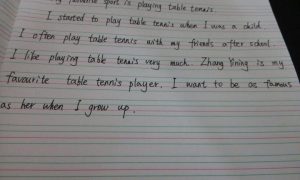 favourite sport is playing table tennis
I started to play table tennis when I was a child.
I often play table tennis with my friends after school.
I like playing table tennis very much. Zhang Yining is my
favourite table tennis player. I want to be as famous
as her when I grow up.